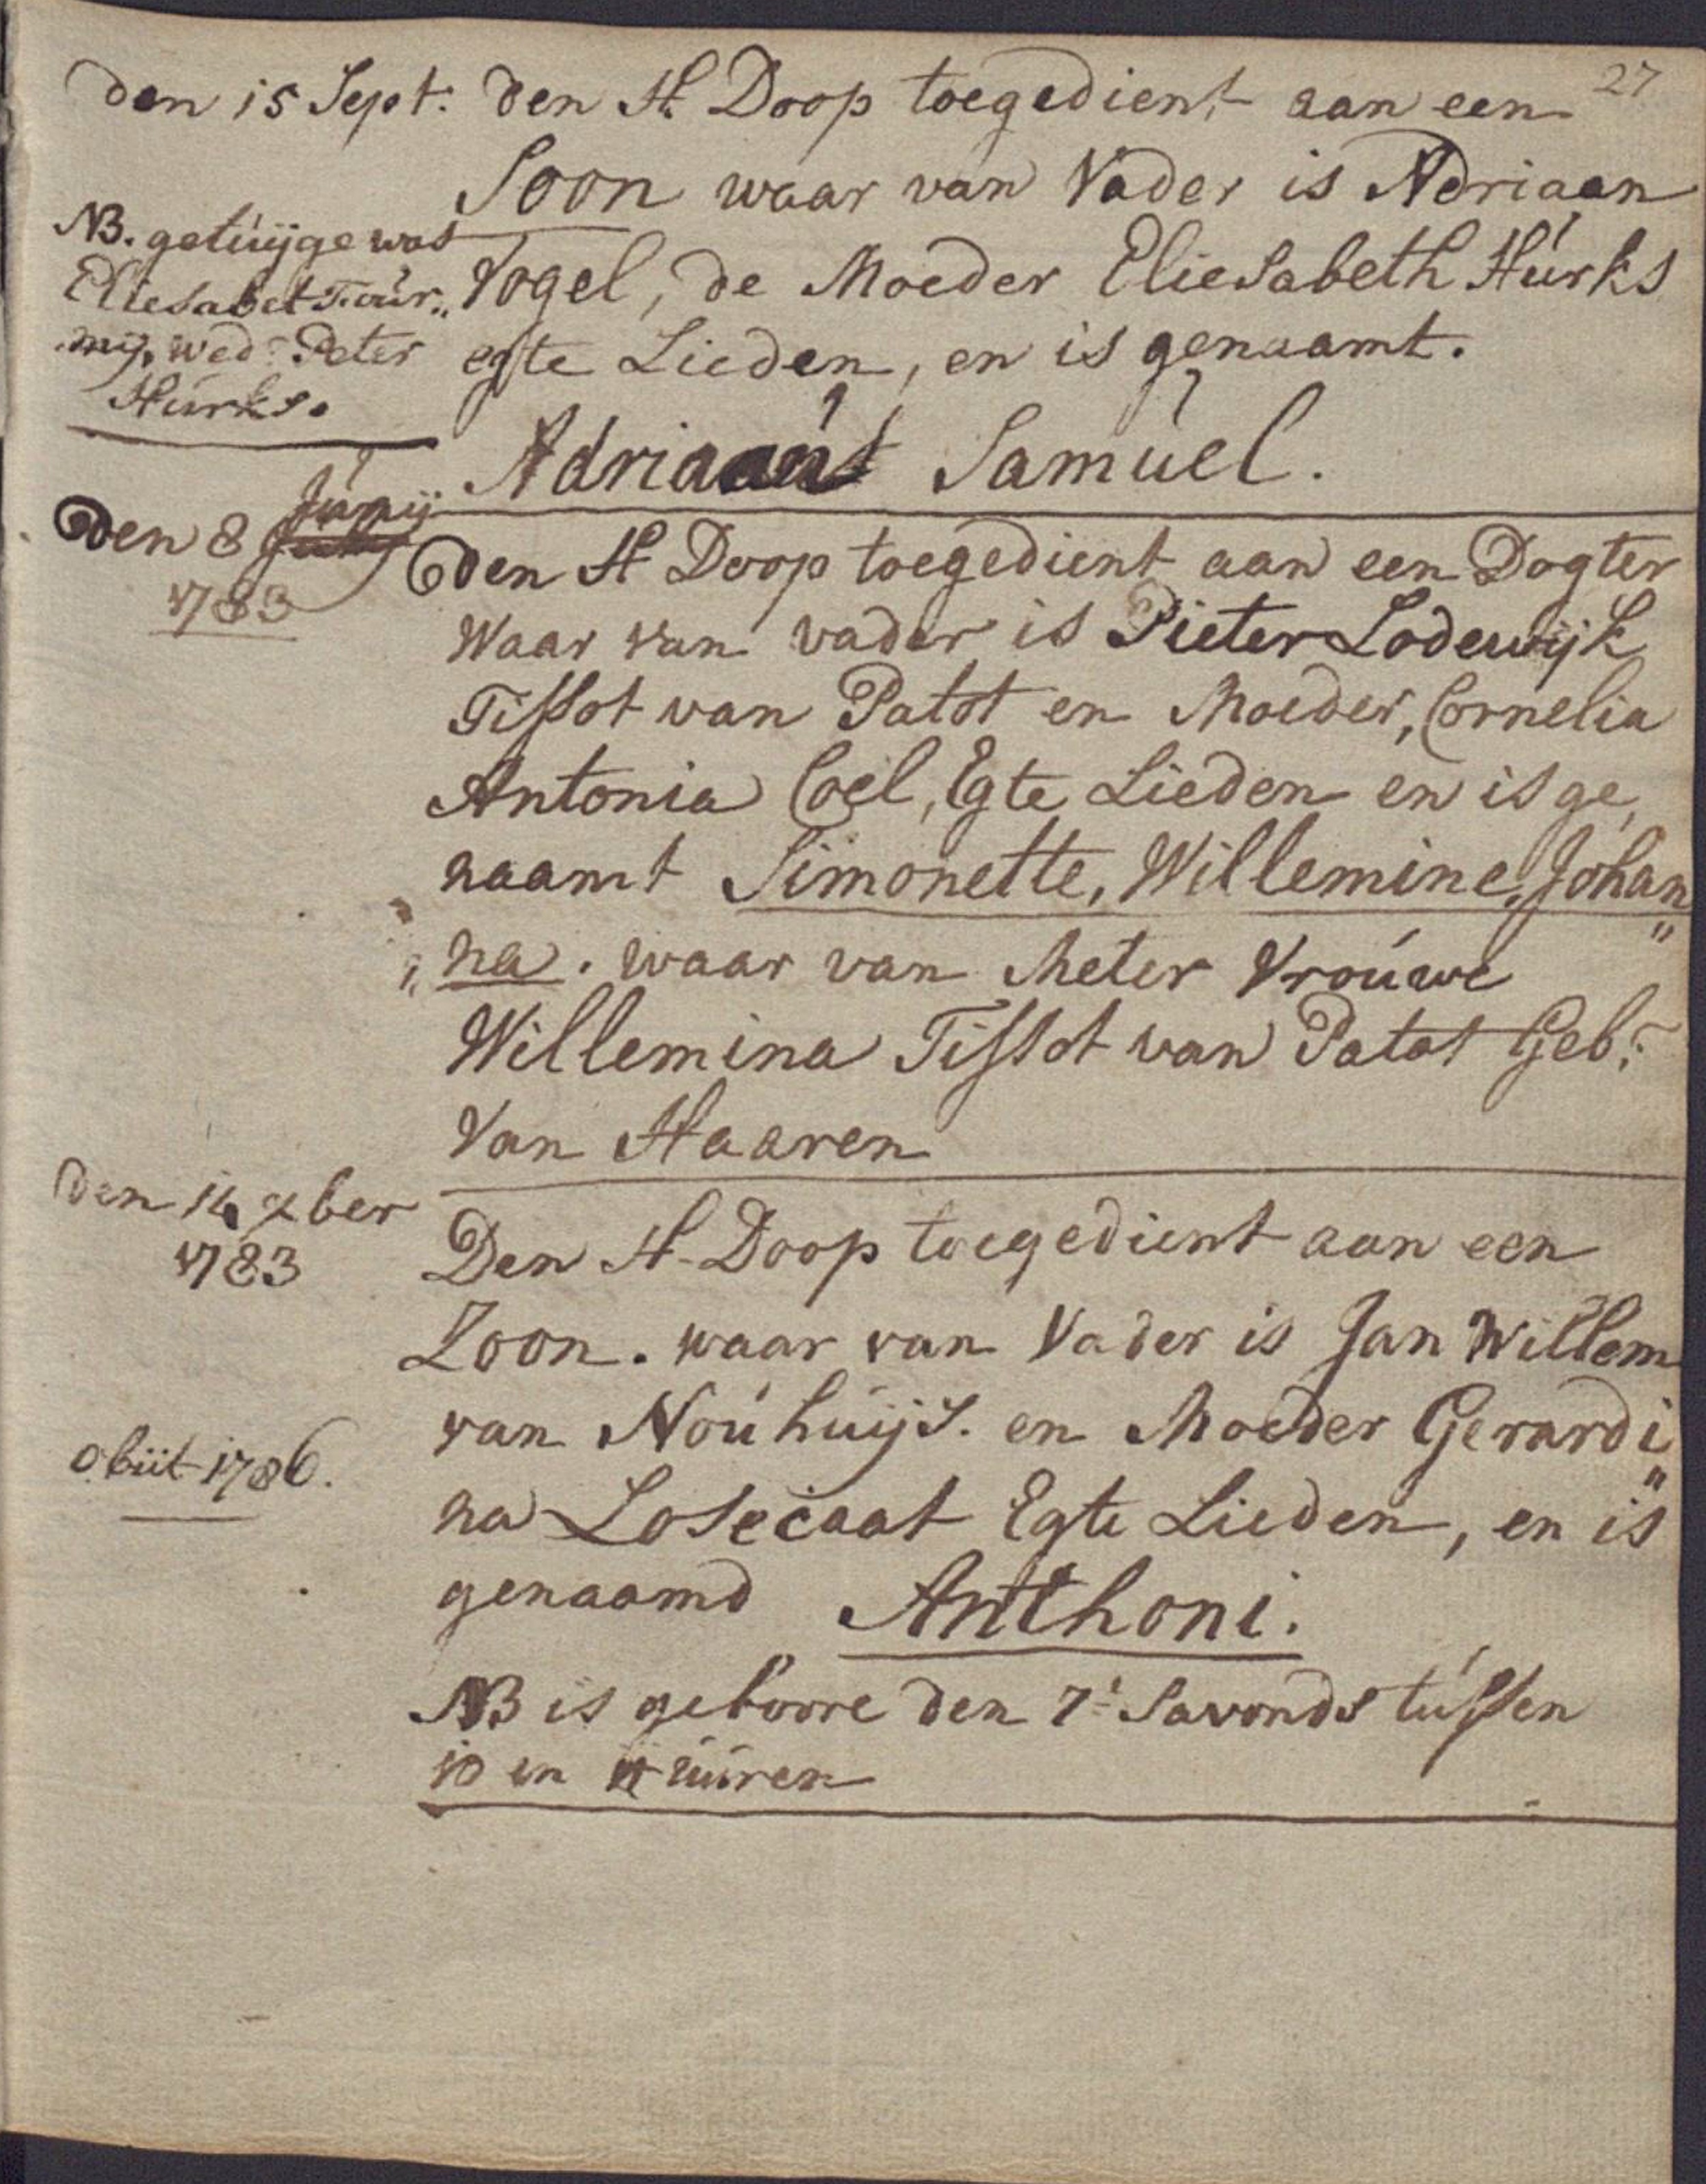 27
den 15 Sept: den H Doop toegedient aan een
Soon waar van Vader is Adriaan
Vogel, de Moeder Eliesabeth Húrks
egte Lieden, en is genaamt.
Adriaan Samúel.
NB. getúijge was
Eliesabet Toúr„
mij. wed: Peter
Húrks.
Den 8 Júnij
1783
Den H Doop toegedient aan een Dogter
Waar van vader is Pieter Lodewijk
Tissot van Patot en Moeder, Cornelia
Antonia Coel, Egte Lieden en is ge„
naamt Simonette, Willemine, Johan„
„na. waar van Meter Vroúwe
Willemina Tissot van Patot Geb:
Van Haaren
den 14 xber
1783
Den H. Doop toegedient aan een
Zoon. waar van Vader is Jan Willem
van Noúhúijs. en Moeder Gerardi„
na Losecaat Egte Lieden, en is
genaamd Anthoni.
obiit 1786.
NB is geboore den 7: Savonds tússen
10 en 11 úúren